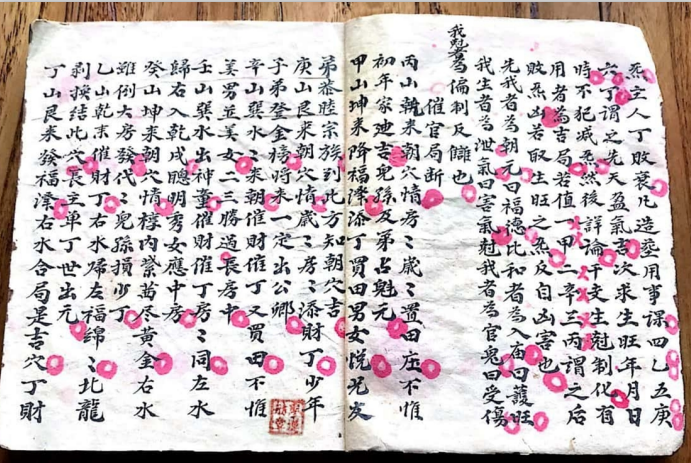 煞主人丁敗衰凡造塟用事課四乙五庚
六丁謂之先天盈氣吉次求生旺年月日
時不犯减煞然後詳論干支生尅制化有
用者為吉局若值一甲二辛三丙謂之后
敗煞凶若取生旺之煞反自凶害也
先我者為朝元曰福德比和者為入庙曰護旺
我生者為泄氣曰害氣尅我者為官鬼曰受傷
我尅者為偏制反讎也
催官局断
丙山乾来朝穴情房二歲二置田庄不惟
初年家廸吉兒孫及第占魁元
甲山坤来降福澤添丁買田男女悦兄友
弟恭睦宗族到此方知朝穴吉
庚山艮来朝穴情歲二房二添財丁少年
子弟登金榜将来一定出公卿
辛山巽水二来朝催財催丁又買田不惟
美男並美女二三勝過長房中
壬山巽水出神童催財催丁房二同左水
歸右入乾戌聰明秀女應中房
癸山坤来朝穴情樽内紫萬尽黄金右水
雖倒大房發代二兒孫損少丁
乙山乾来催財丁右水歸左福綿二北龍
剥換結此穴長主单丁世出元
丁山艮来發福澤右水合局是吉穴丁財